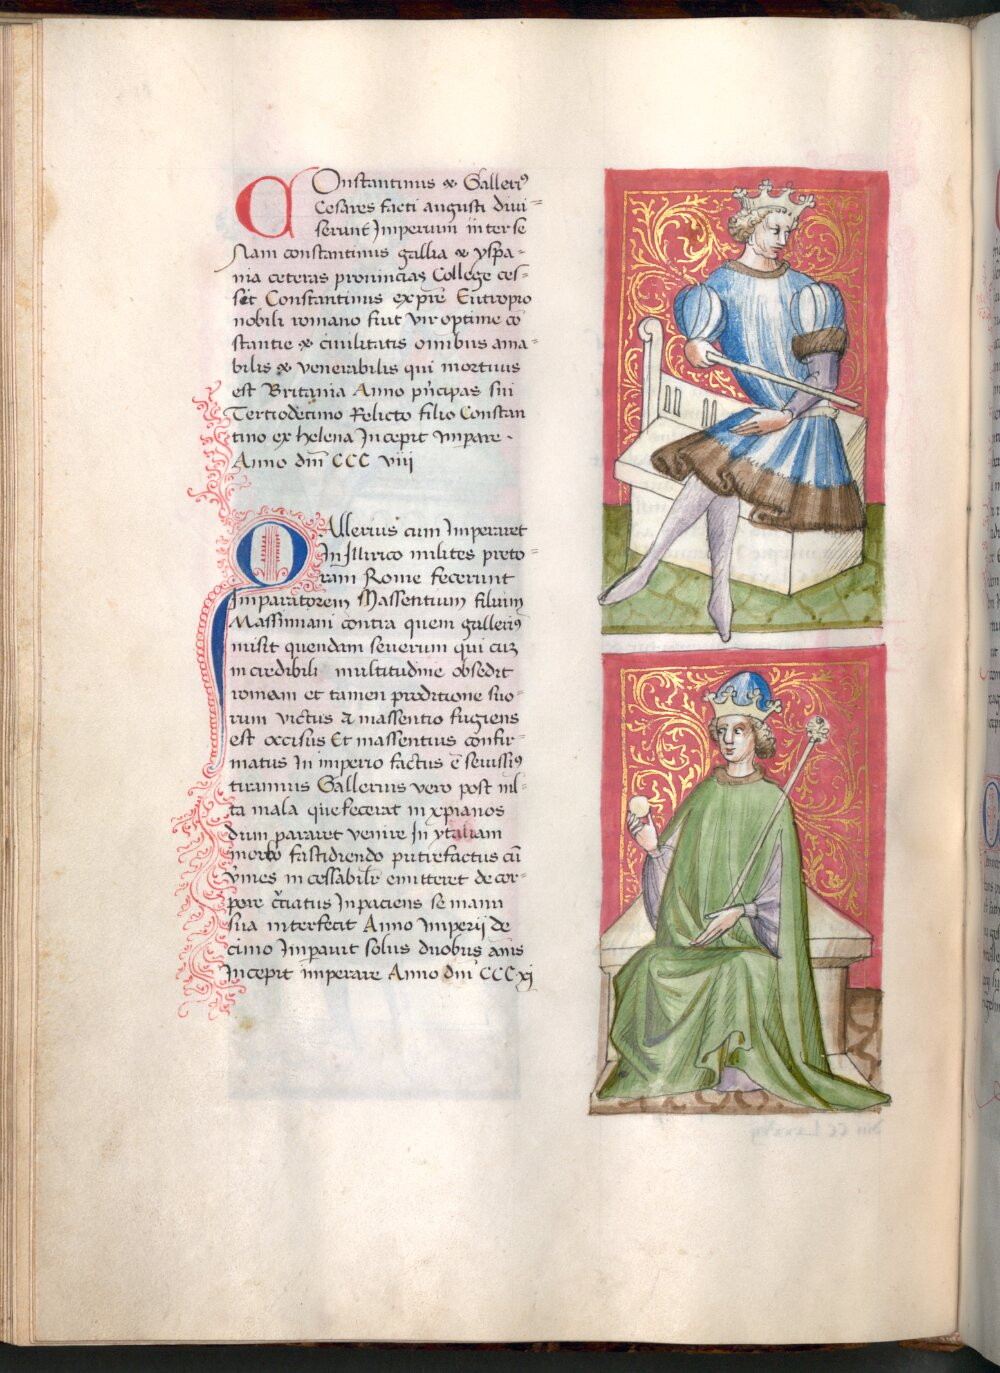 COnstantinus & Galleriꝰ
Cesares facti augusti divi=
serunt Imperium inter se
Nam constantinus gallia & yspa=
nia ceteras provincias College ces=
sit Constantinus ex pre Eutropio
nobili romano fuit vir optime co
stantie & civilitatis omibus ama=
bilis & venerabilis qui mortuus
est Britania Anno pncipas sui
Tertiodecimo Relicto filio Constan
tino ex helena Incepit impare.
Anno dm̄ CCC viii
GAllerius cum Imperaret
In Illirico milites preto=
rani Rome fecerunt
Imparatorem Massentium filium
Massimiani contra quem galleriꝰ
misit quendam severum qui cuz
incredibili multitudine obsedit
romam et tamen proditione suo=
rum victus a massentio fugiens
est occisus Et massentius confir=
matus In imperio factus ē sevissiꝰ
tirannus Gallerius vero post ml=
ta mala que fecerat in xpianos
dum pararet venire In ytaliam
morbo fastidiendo putrefactus cū
vmes incessabilr emitteret de cor=
pore cꝛ̄iatus Inpaciens se manu
sua interfecit Anno Imperij de
cimo Impavit solus duobus anis
Incepit imperare Anno dm̄ CCC xj